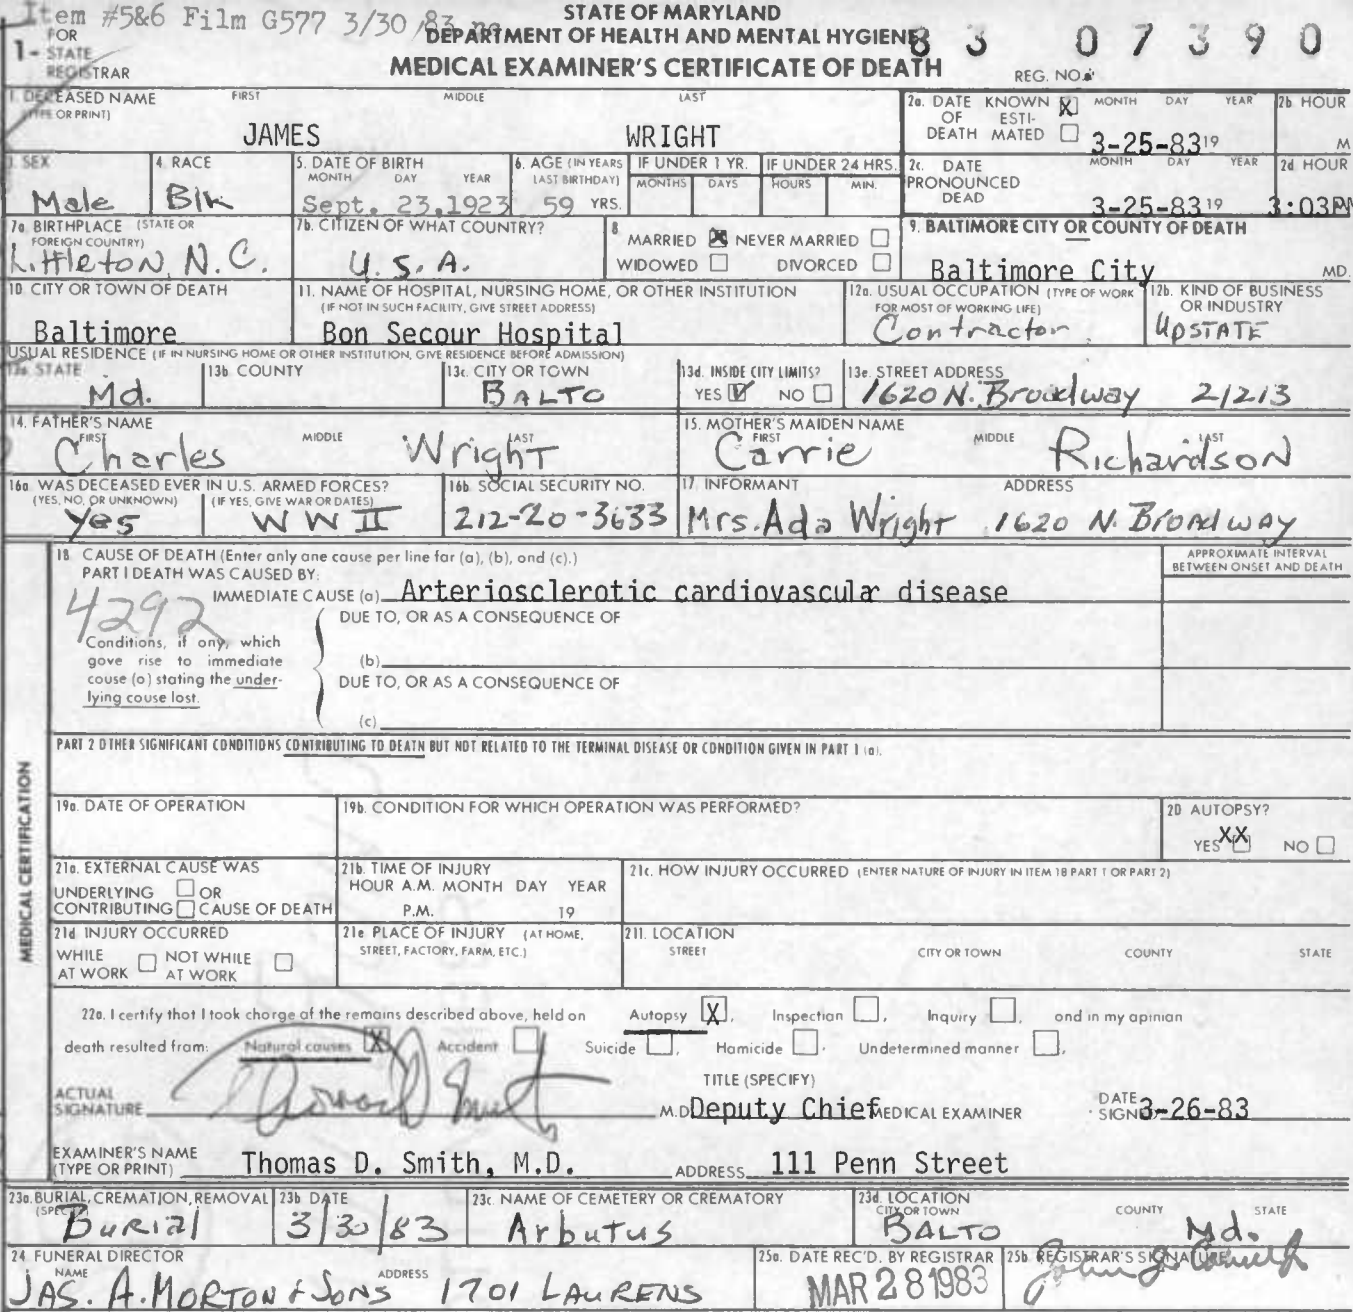 Item #5&6 Film G577 3/30/83
STATE OF MARYLAND
DEPARTMENT OF HEALTH AND MENTAL HYGIENE
MEDICAL EXAMINER'S CERTIFICATE OF DEATH
1- FOR STATE REGISTRAR
83 07390
REG. NO.
1. DECEASED NAME (TYPE OR PRINT) FIRST MIDDLE LAST
JAMES WRIGHT
2a. DATE OF DEATH KNOWN X ESTIMATED MONTH DAY YEAR
3-25-83 19
2b HOUR M
3. SEX
Male
4. RACE
Blk
5. DATE OF BIRTH MONTH DAY YEAR
Sept. 23,1923
6. AGE (IN YEARS LAST BIRTHDAY)
59 YRS.
IF UNDER 1 YR. MONTHS DAYS
IF UNDER 24 HRS. HOURS MIN.
2c. DATE PRONOUNCED DEAD MONTH DAY YEAR
3-25-83 19
2d HOUR
3:03PM
7a. BIRTHPLACE (STATE OR FOREIGN COUNTRY)
Littleton, N.C.
7b. CITIZEN OF WHAT COUNTRY?
U.S.A.
8 MARRIED X NEVER MARRIED
WIDOWED DIVORCED
9. BALTIMORE CITY OR COUNTY OF DEATH
Baltimore City MD.
10. CITY OR TOWN OF DEATH
Baltimore
11. NAME OF HOSPITAL, NURSING HOME, OR OTHER INSTITUTION
(IF NOT IN SUCH FACILITY, GIVE STREET ADDRESS)
Bon Secour Hospital
12a. USUAL OCCUPATION (TYPE OF WORK FOR MOST OF WORKING LIFE)
Contractor
12b. KIND OF BUSINESS OR INDUSTRY
UPSTATE
USUAL RESIDENCE (IF IN NURSING HOME OR OTHER INSTITUTION, GIVE RESIDENCE BEFORE ADMISSION)
13a. STATE
Md.
13b. COUNTY
13c. CITY OR TOWN
BALTO
13d. INSIDE CITY LIMITS?
YES ✓ NO
13e. STREET ADDRESS
1620 N. Broadway 21213
14. FATHER'S NAME FIRST MIDDLE LAST
Charles Wright
15. MOTHER'S MAIDEN NAME FIRST MIDDLE LAST
Carrie Richardson
16a. WAS DECEASED EVER IN U.S. ARMED FORCES?
(YES, NO, OR UNKNOWN) (IF YES, GIVE WAR OR DATES)
Yes WW II
16b. SOCIAL SECURITY NO.
212-20-3633
17. INFORMANT ADDRESS
Mrs. Ada Wright 1620 N. Broadway
MEDICAL CERTIFICATION
18. CAUSE OF DEATH (Enter only one cause per line for (a), (b), and (c).)
APPROXIMATE INTERVAL BETWEEN ONSET AND DEATH
PART I DEATH WAS CAUSED BY:
IMMEDIATE CAUSE (a) Arteriosclerotic cardiovascular disease
4292
DUE TO, OR AS A CONSEQUENCE OF
Conditions, if any, which
gave rise to immediate
cause (a) stating the under-
lying cause last.
(b)
DUE TO, OR AS A CONSEQUENCE OF
(c)
PART 2 OTHER SIGNIFICANT CONDITIONS CONTRIBUTING TO DEATH BUT NOT RELATED TO THE TERMINAL DISEASE OR CONDITION GIVEN IN PART 1 (a).
19a. DATE OF OPERATION
19b. CONDITION FOR WHICH OPERATION WAS PERFORMED?
20 AUTOPSY?
YES XX NO
21a. EXTERNAL CAUSE WAS
UNDERLYING OR
CONTRIBUTING CAUSE OF DEATH
21b. TIME OF INJURY
HOUR A.M. MONTH DAY YEAR
P.M. 19
21c. HOW INJURY OCCURRED (ENTER NATURE OF INJURY IN ITEM 18 PART 1 OR PART 2)
21d INJURY OCCURRED
WHILE AT WORK NOT WHILE AT WORK
21e PLACE OF INJURY (AT HOME, STREET, FACTORY, FARM, ETC.)
21f. LOCATION
STREET CITY OR TOWN COUNTY STATE
22a. I certify that I took charge of the remains described above, held on Autopsy X, Inspection, Inquiry, and in my opinion
death resulted from: Natural causes X Accident Suicide, Homicide, Undetermined manner,
ACTUAL SIGNATURE
M.D.
TITLE (SPECIFY)
Deputy Chief MEDICAL EXAMINER
DATE SIGNED 3-26-83
EXAMINER'S NAME (TYPE OR PRINT) Thomas D. Smith, M.D. ADDRESS 111 Penn Street
23a. BURIAL, CREMATION, REMOVAL (SPECIFY)
Burial
23b DATE
3/30/83
23c. NAME OF CEMETERY OR CREMATORY
Arbutus
23d. LOCATION CITY OR TOWN COUNTY STATE
BALTO Md.
24 FUNERAL DIRECTOR
NAME ADDRESS
JAS. A. MORTON & SONS 1701 LAURENS
25a. DATE REC'D. BY REGISTRAR
MAR 28 1983
25b. REGISTRAR'S SIGNATURE